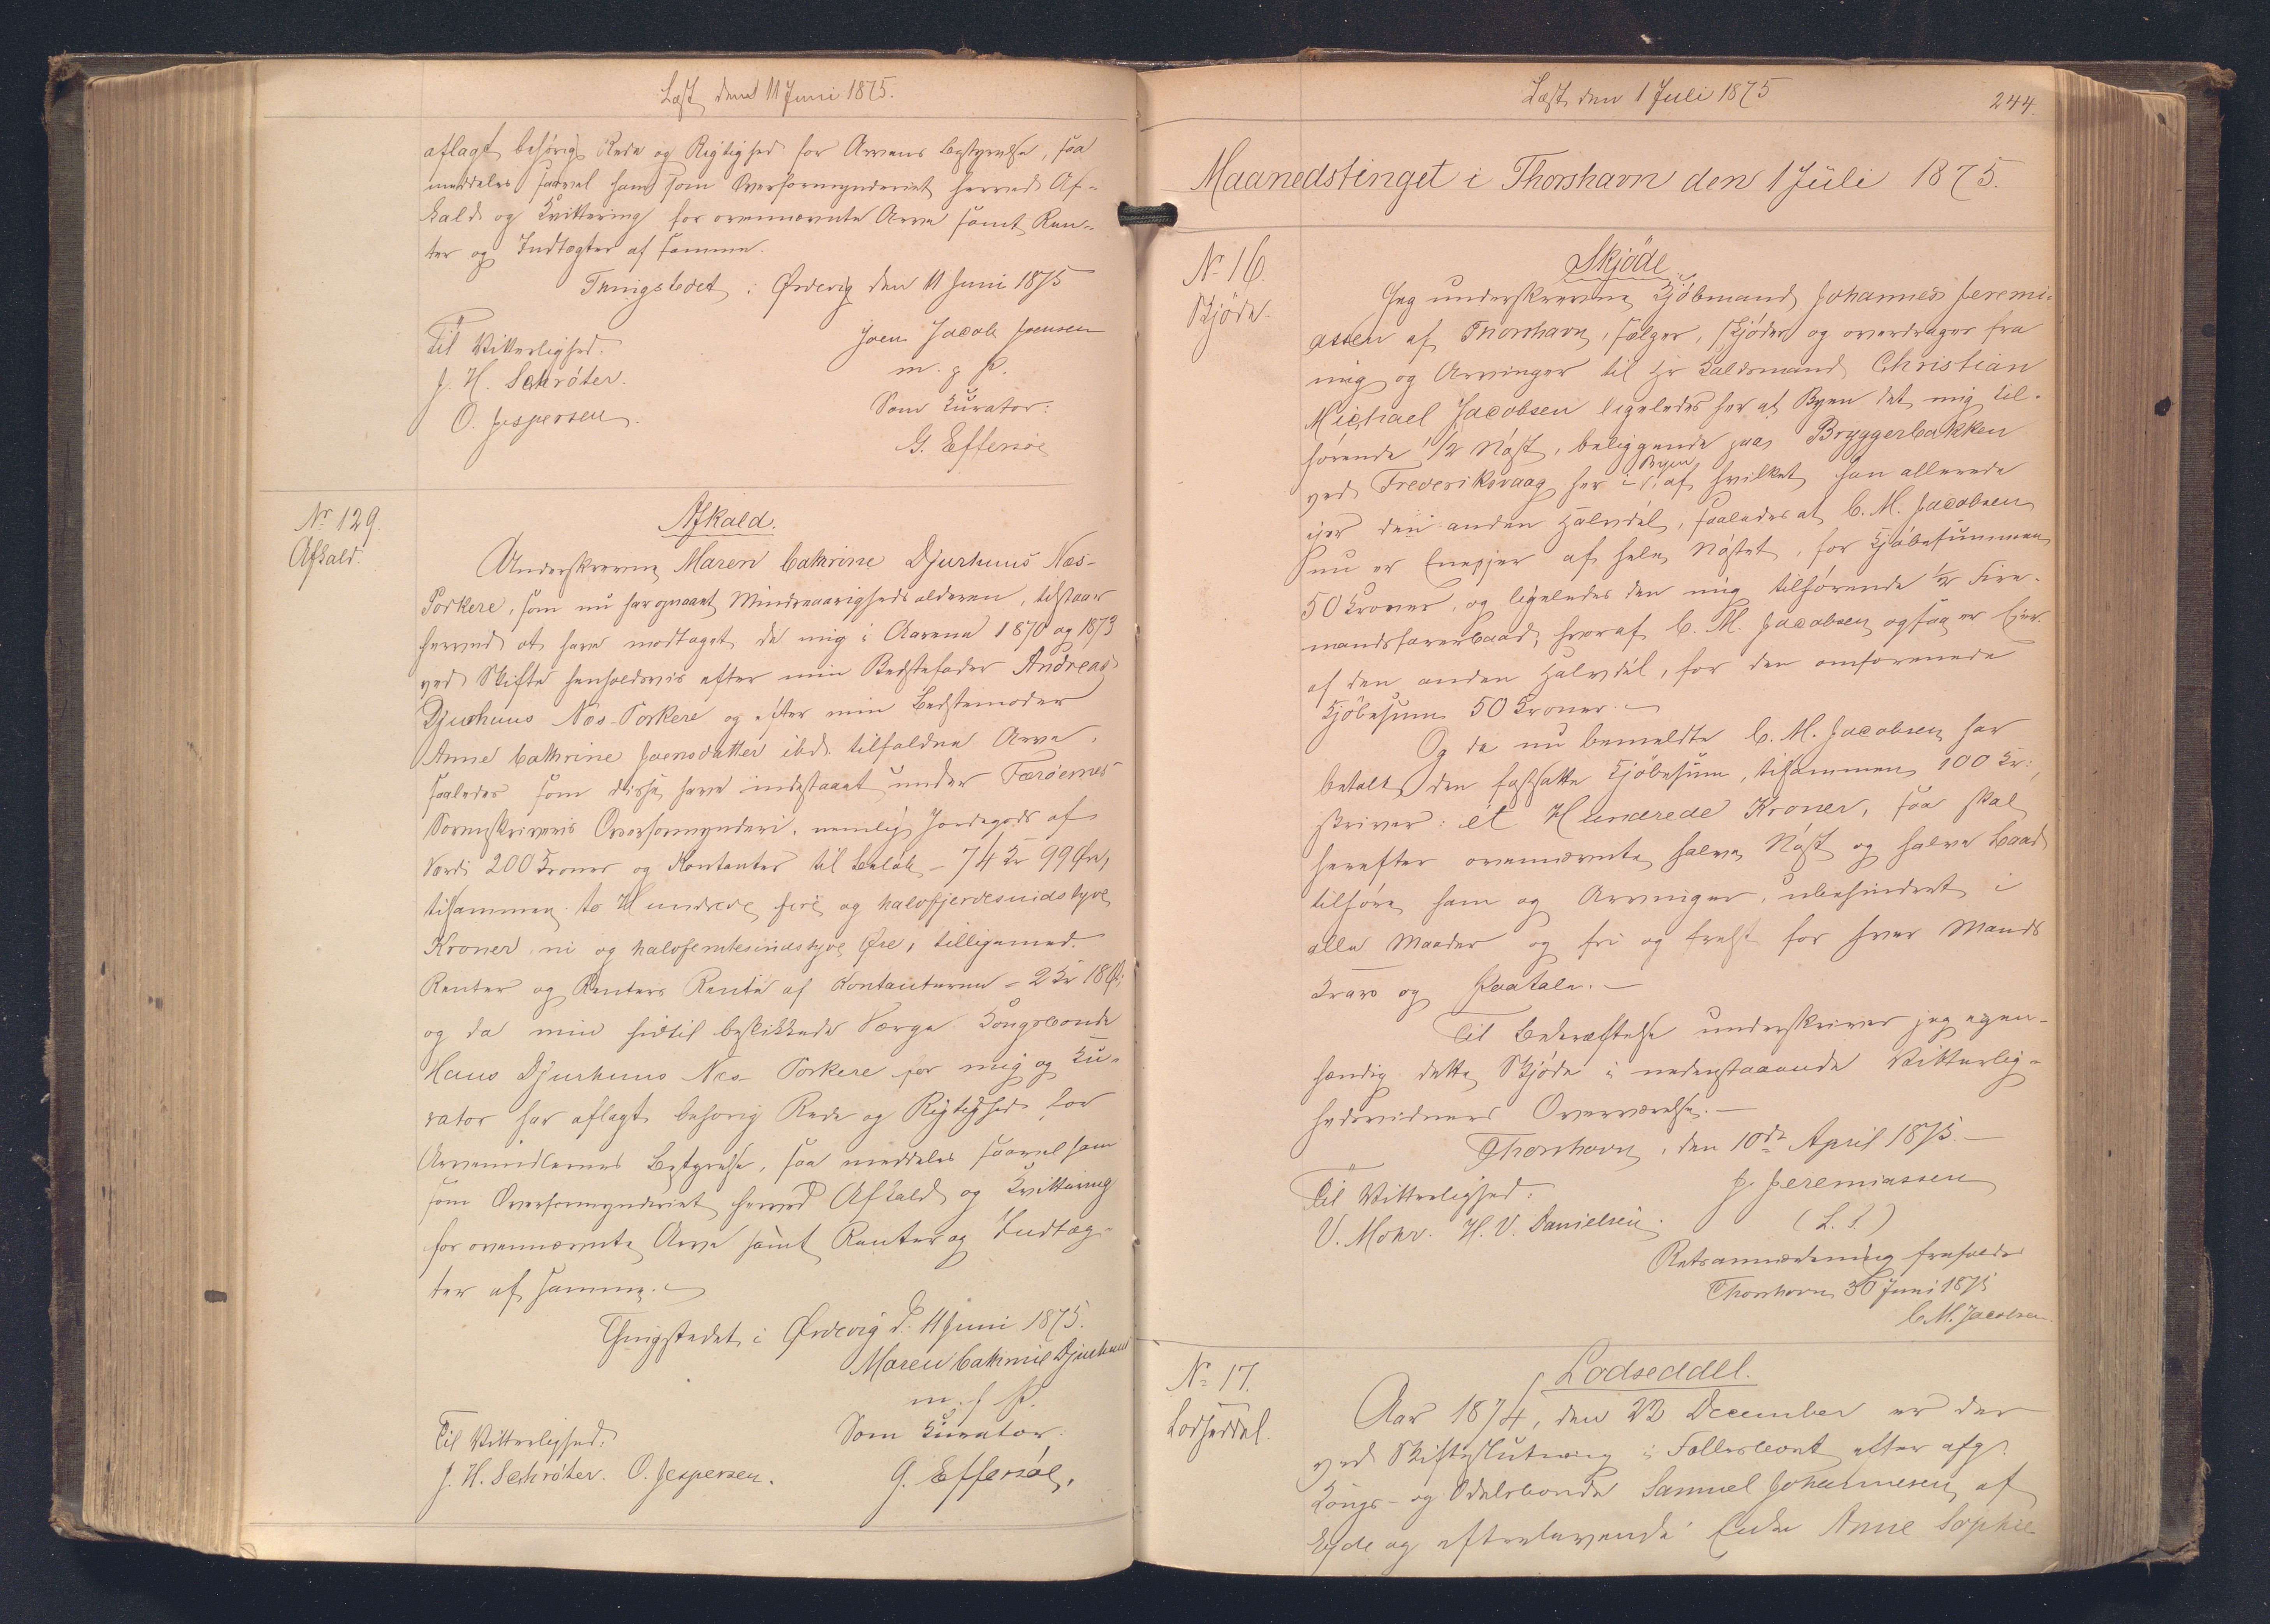 Læst den 11 Juni 1875.
aflagt behørig Rede og Rigtighed for Arvens Bestyrelse, saa
meddeles saavel ham som Overformynderiet herved Af-
kald og Kvittering for ovennævnte Arve samt Ren-
ter og Indtægter af samme.
Thingstedet i Ørdevig den 11 Juni 1875
Joen Jacob Joensen
m. p. P.
Til Vitterlighed.
J. H. Schröter.
O. Jespersen.
Som Kurator:
G. Effersøe
No 129.
Afkald.
Afkald.
Underskrevne Maren Cathrine Djurhuus Næs-
Porkere, som nu har opnaaet Mindreaarighedsalderen, tilstaar
herved at have modtaget de mig i Aarene 1870 og 1873
ved Skifte henholdsvis efter min Bedstefader Andreas
Djurhuus Næs-Porkere og efter min Bedstemoder
Anne Cathrine Joensdatter ibd. tilfaldne Arve,
saaledes som disse have indestaaet under Færøernes
Sorenskriveris Overformynderi, nemlig Jordegods af
Værdi 200 Kroner og Kontanter til Beløb - 74 Kr 99 Øre,
tilsammen to Hundrede fire og halvfjerdesindstyve
Kroner ni og halvfemtesindstyve Øre, tilligemed
Renter og Renters Rente af Kontanterne - 2 Kr 18 Ø;
og da min hidtil beskikkede Værge Kongsbonde
Hans Djurhuus Næs-Porkere for mig og Ku-
rator har aflagt behørig Rede og Rigtighed for
Arvemidlernes Bestyrelse, saa meddeles saavel ham
som Overformynderiet herved Afkald og Kvittering
for ovennævnte Arve samt Renter og Indtæg-
ter af samme.
Thingstedet i Ørdevig d. 11 Juni 1875.
Maren Cathrine Djurhuus
m. f. P.
Til Vitterlighed:
Som Kurator:
J. H. Schröter. O. Jespersen.
G. Effersøe.
Læst den 1 Juli 1875
244.
Maanedstinget i Thorshavn den 1 Juli 1875.
No 16.
Skjöde.
Skjöde
Jeg underskrevne Kjöbmand Johannes Jeremi-
assen af Thorshavn, sælger, skjöder og overdrager fra
mig og Arvinger til Hr Kaldsmand Christian
Michael Jacobsen ligeledes her af Byen det mig til-
hørende 1/2 Nøst, beliggende paa Bryggerbakken
ved Frederiksvaag her i Byen, af hvilket han allerede
ejer den anden Halvdel, saaledes at C. M. Jacobsen
nu er Eneejer af hele Nøstet, for Kjöbesummen
50 Kroner, og ligeledes den mig tilhørende 1/2 Fire-
mandsfarerbaad, hvoraf C. M. Jacobsen ogsaa er Ejer
af den anden Halvdel, for den omforenede
Kjöbesum 50 Kroner. -
Og da nu bemeldte C. M. Jacobsen har
betalt den fastsatte Kjöbesum, tilsammen 100 Kr:,
skriver: ét Hundrede Kroner, saa skal
herefter ovennævnte halve Nøst og halve Baad
tilhøre ham og Arvinger, ubehindret i
alle Maader og fri og frelst for hver Mands
Krav og Paatale. -
Til Bekræftelse underskriver jeg egen-
hændig dette Skjöde i nedenstaaende Vitterlig-
hedsvidners Overværelse. -
Thorshavn, den 10de April 1875. -
J. Jeremiassen
(L. S.)
Til Vitterlighed:
V. Mohr. H. V. Danielsen.
Retsanmærkning frafaldes
Thorshavn 30 Juni 1875
C. M. Jacobsen.
No 17.
Lodseddel.
Lodseddel.
Aar 1874, den 22 December er der
ved Skifteslutning i Fællesboet efter afg.
Kongs- og Odelsbonde Samuel Johannesen af
Ejde og efterlevende Enke Anne Sophie